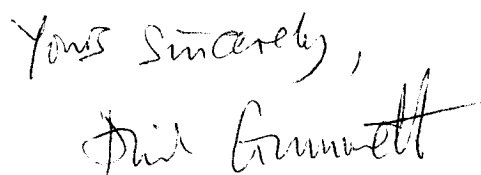 Yours Sincerely,
Phil Gummett